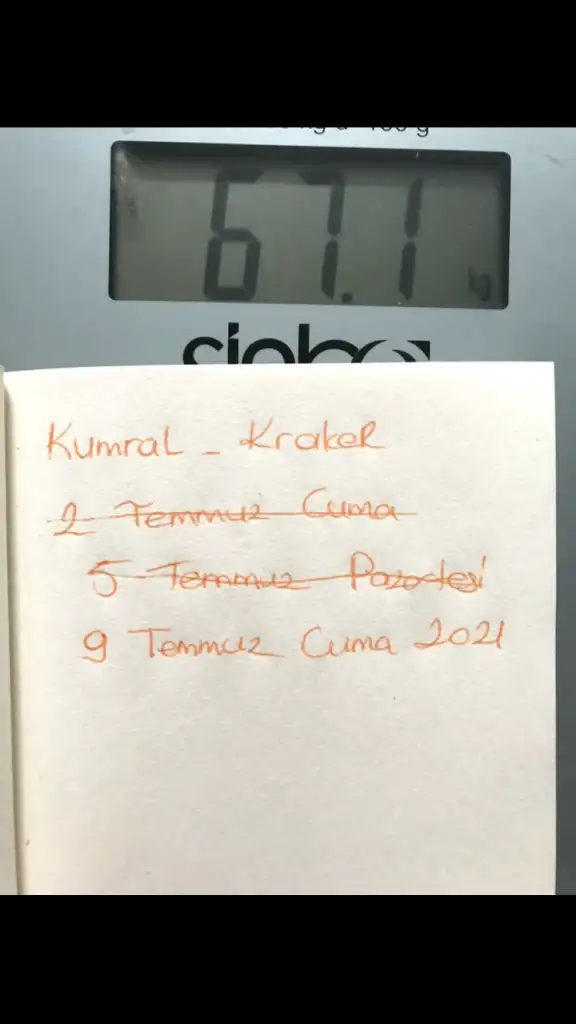 67.1
Kumral - Kraker
2 Temmuz Cuma
5 Temmuz Pazartesi
9 Temmuz Cuma 2021